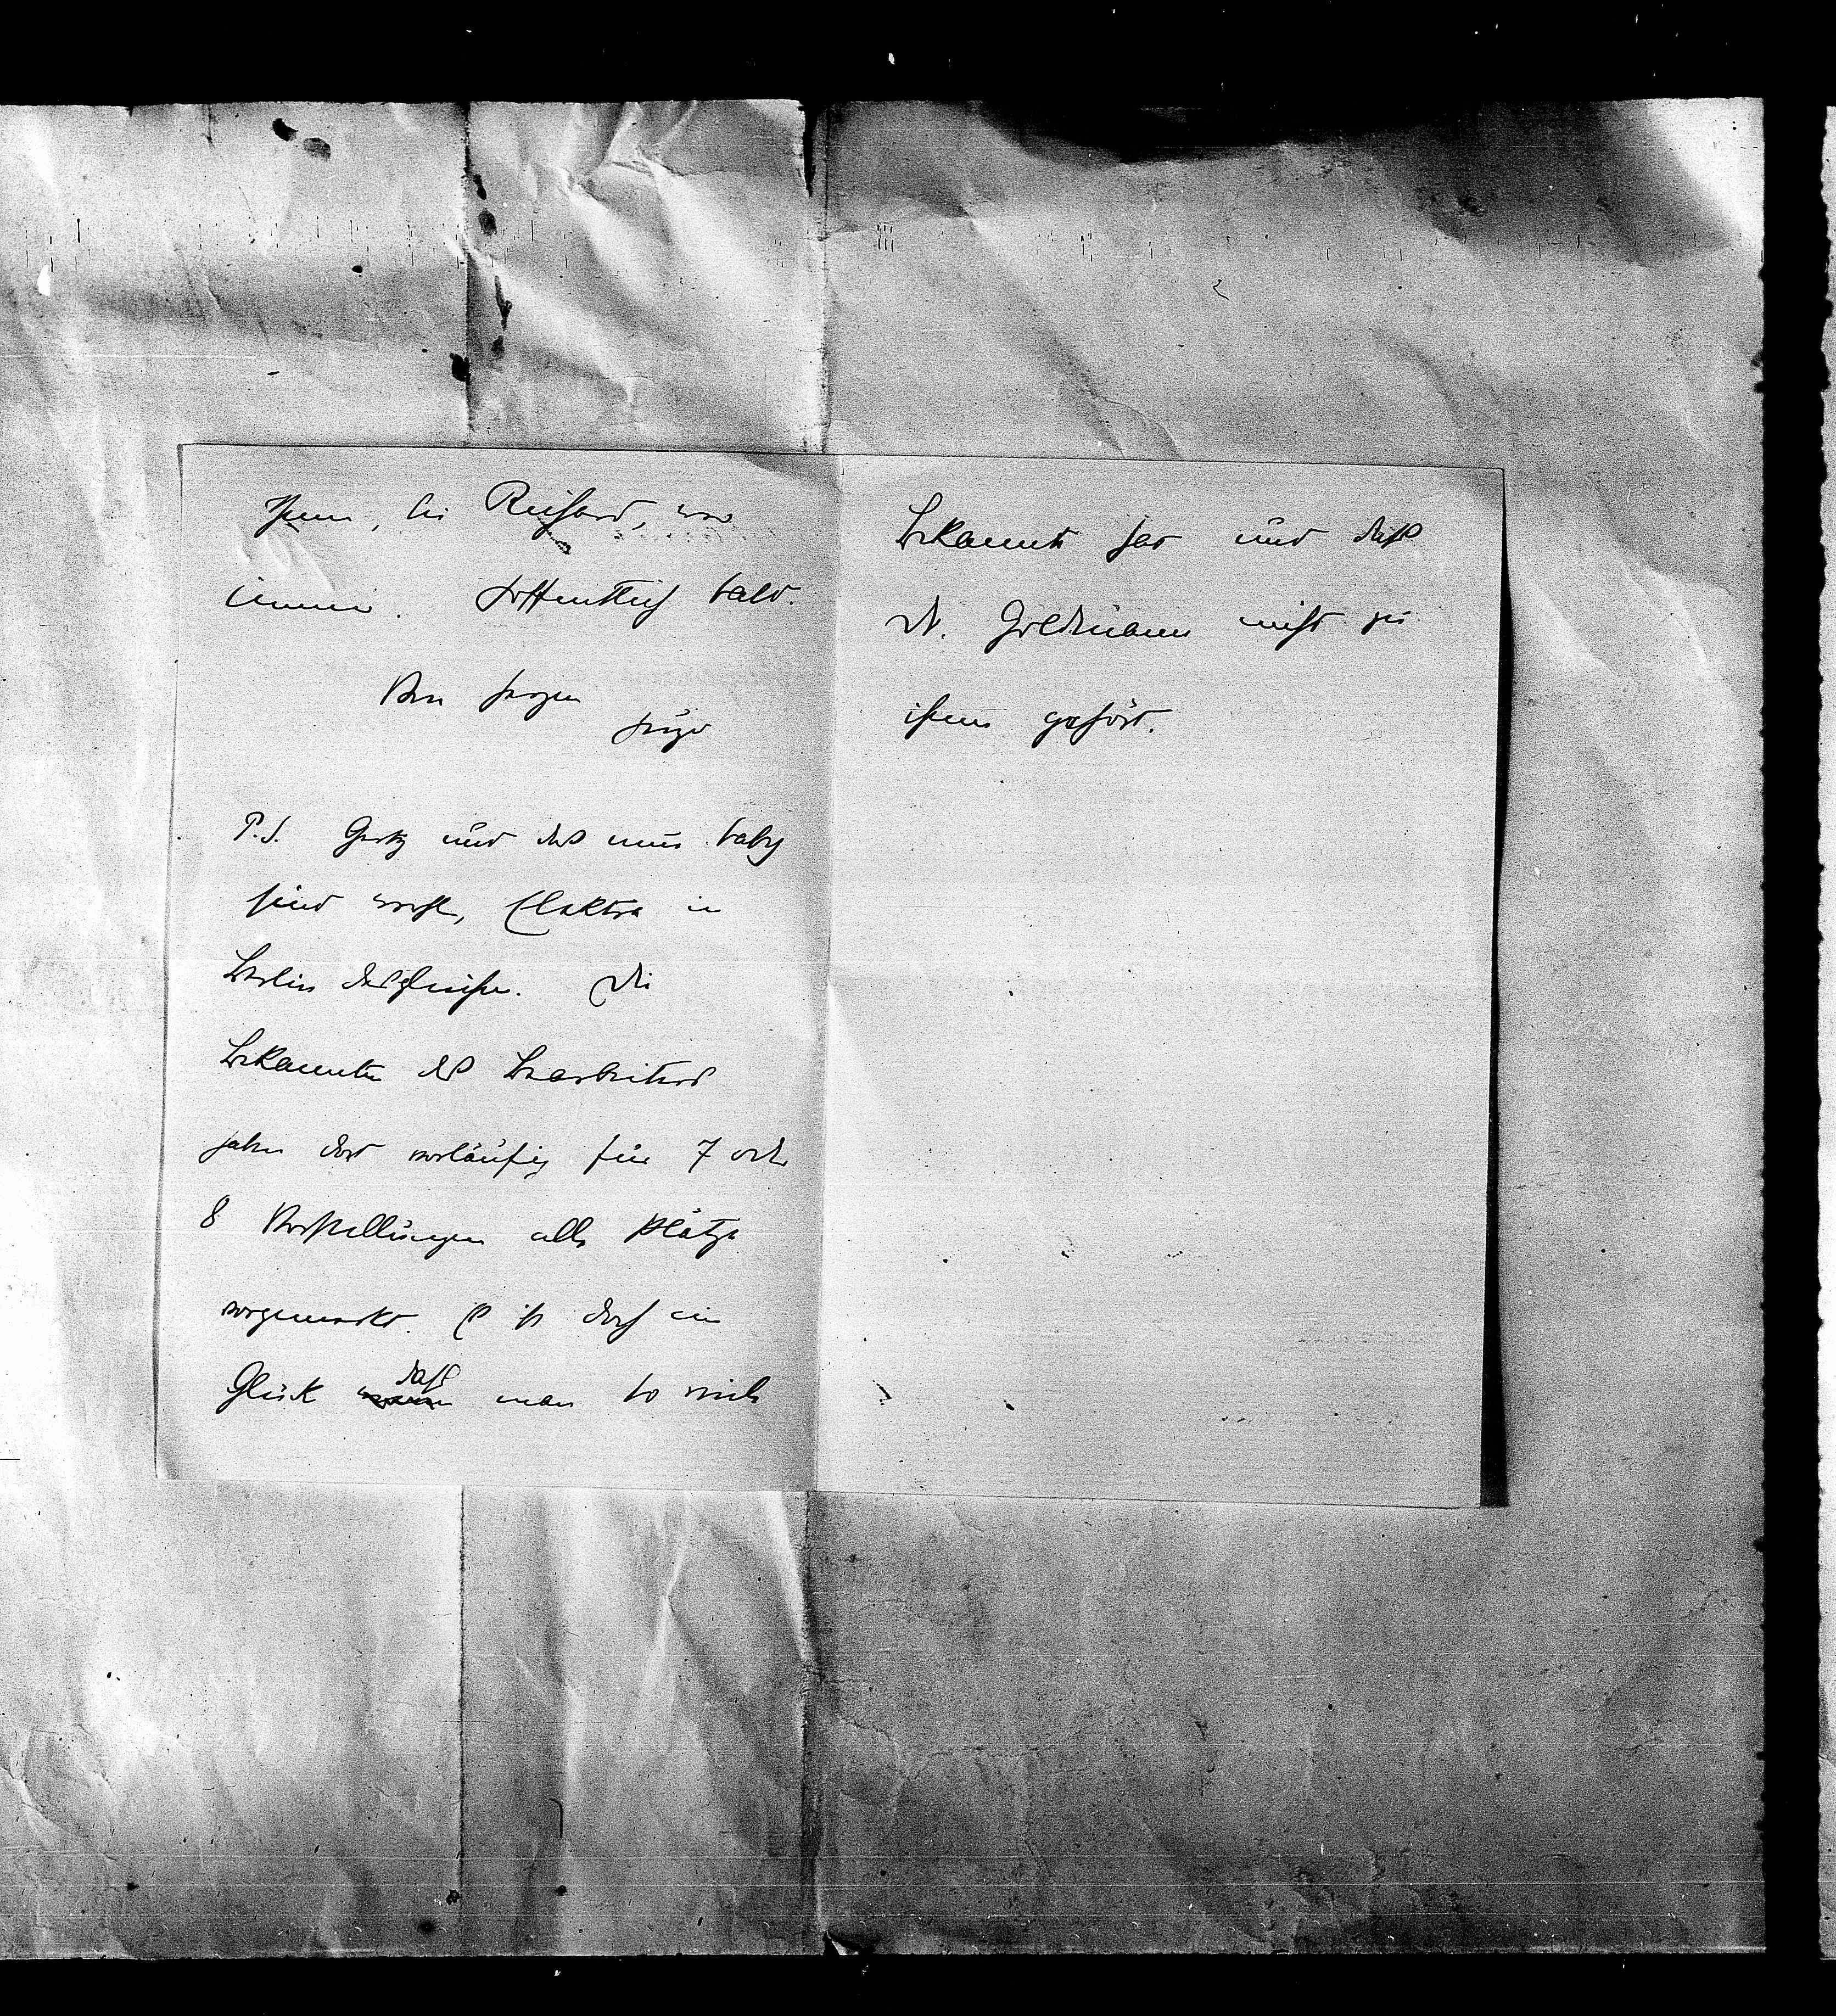 Ihnen, bei Richard, wo
immer. Hoffentlich bald.
Von Herzen
Hugo
P.S. Gerty und das neue baby
sind wohl, Elektra in
Berlin desgleichen. Die
Bekannten des Bearbeiters
haben dort vorläufig für 7 oder
8 Vorstellungen alle Plätze
vorgemerkt. Es ist doch ein
Glück daß man so viele
Bekannte hat und daß
Dr. Goldmann nicht zu
ihnen gehört.